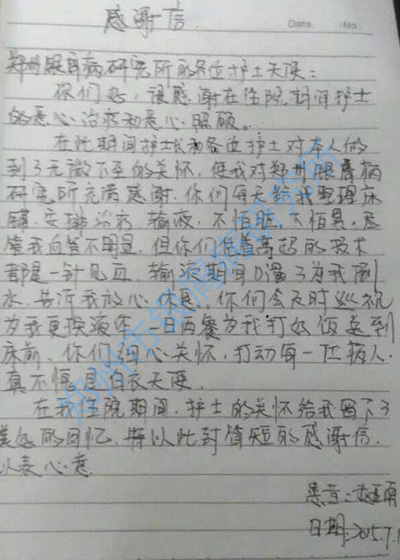 感谢信
Date. No.
郑州银屑病研究所的各位护士天使:
你们好,很感谢在住院期间护士
的悉心治疗和悉心照顾。
在此期间护士长和各位护士对本人做
到了无微不至的关怀,使我对郑州银屑病
研究所充满感谢.你们每天给我整理床
铺.安排治疗 输液,不怕脏,不怕累,尽
管我血管不明显,但你们凭着高超的技术
都是一针见血.输液期间叮嘱了为我倒
水.告诉我放心休息,你们会及时巡视
为我更换液体.一日两餐为我打好饭送到
床前.你们细心关怀,打动每一位病人.
真不愧是白衣天使.
在我住院期间.护士的关怀给我留下了
美好的回忆.将以此封简短的感谢信.
以表心意
患者:
日期:2015.7.1